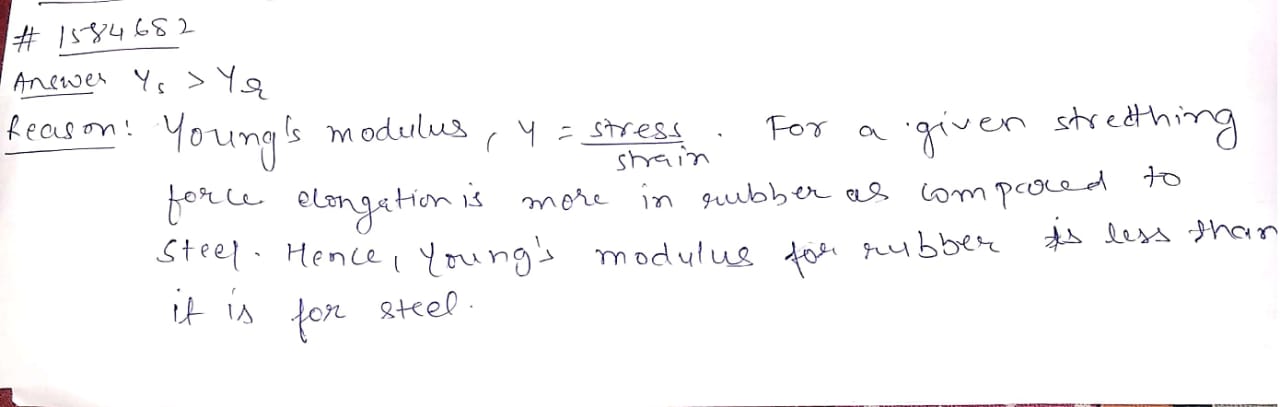 # 1584682
Answer Ys > YR
Reason: Young's modulus, Y = stress/strain. For a given stretching
force elongation is more in rubber as compared to
steel. Hence, Young's modulus for rubber is less than
it is for steel.